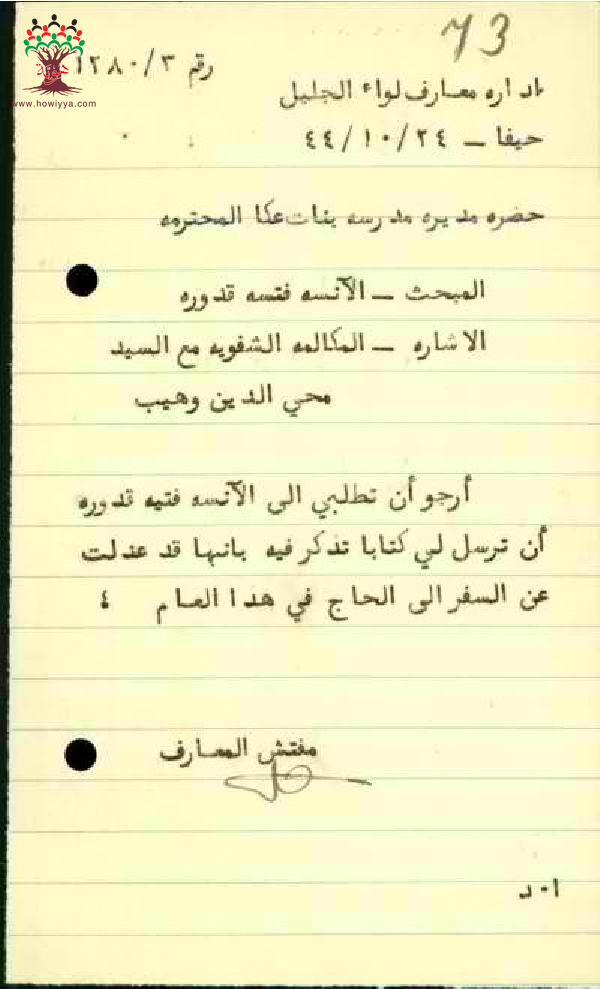 73
رقم ١٢٨٠/٣
www.howiyya.com
اداره معارف لواء الجليل
حيفا – ٤٤/١٠/٢٤
حضره مديره مدرسه بنات عكا المحترمه
المبحث – الآنسه فتسه قدوره
الاشاره – المكالمه الشفويه مع السيد
محي الدين وهيب
أرجو أن تطلبي الى الآنسه فتيه قدوره
أن ترسل لي كتابا تذكر فيه بانها قد عدلت
عن السفر الى الحاج في هدا العام ٤
مفتش المعارف
ا٠د